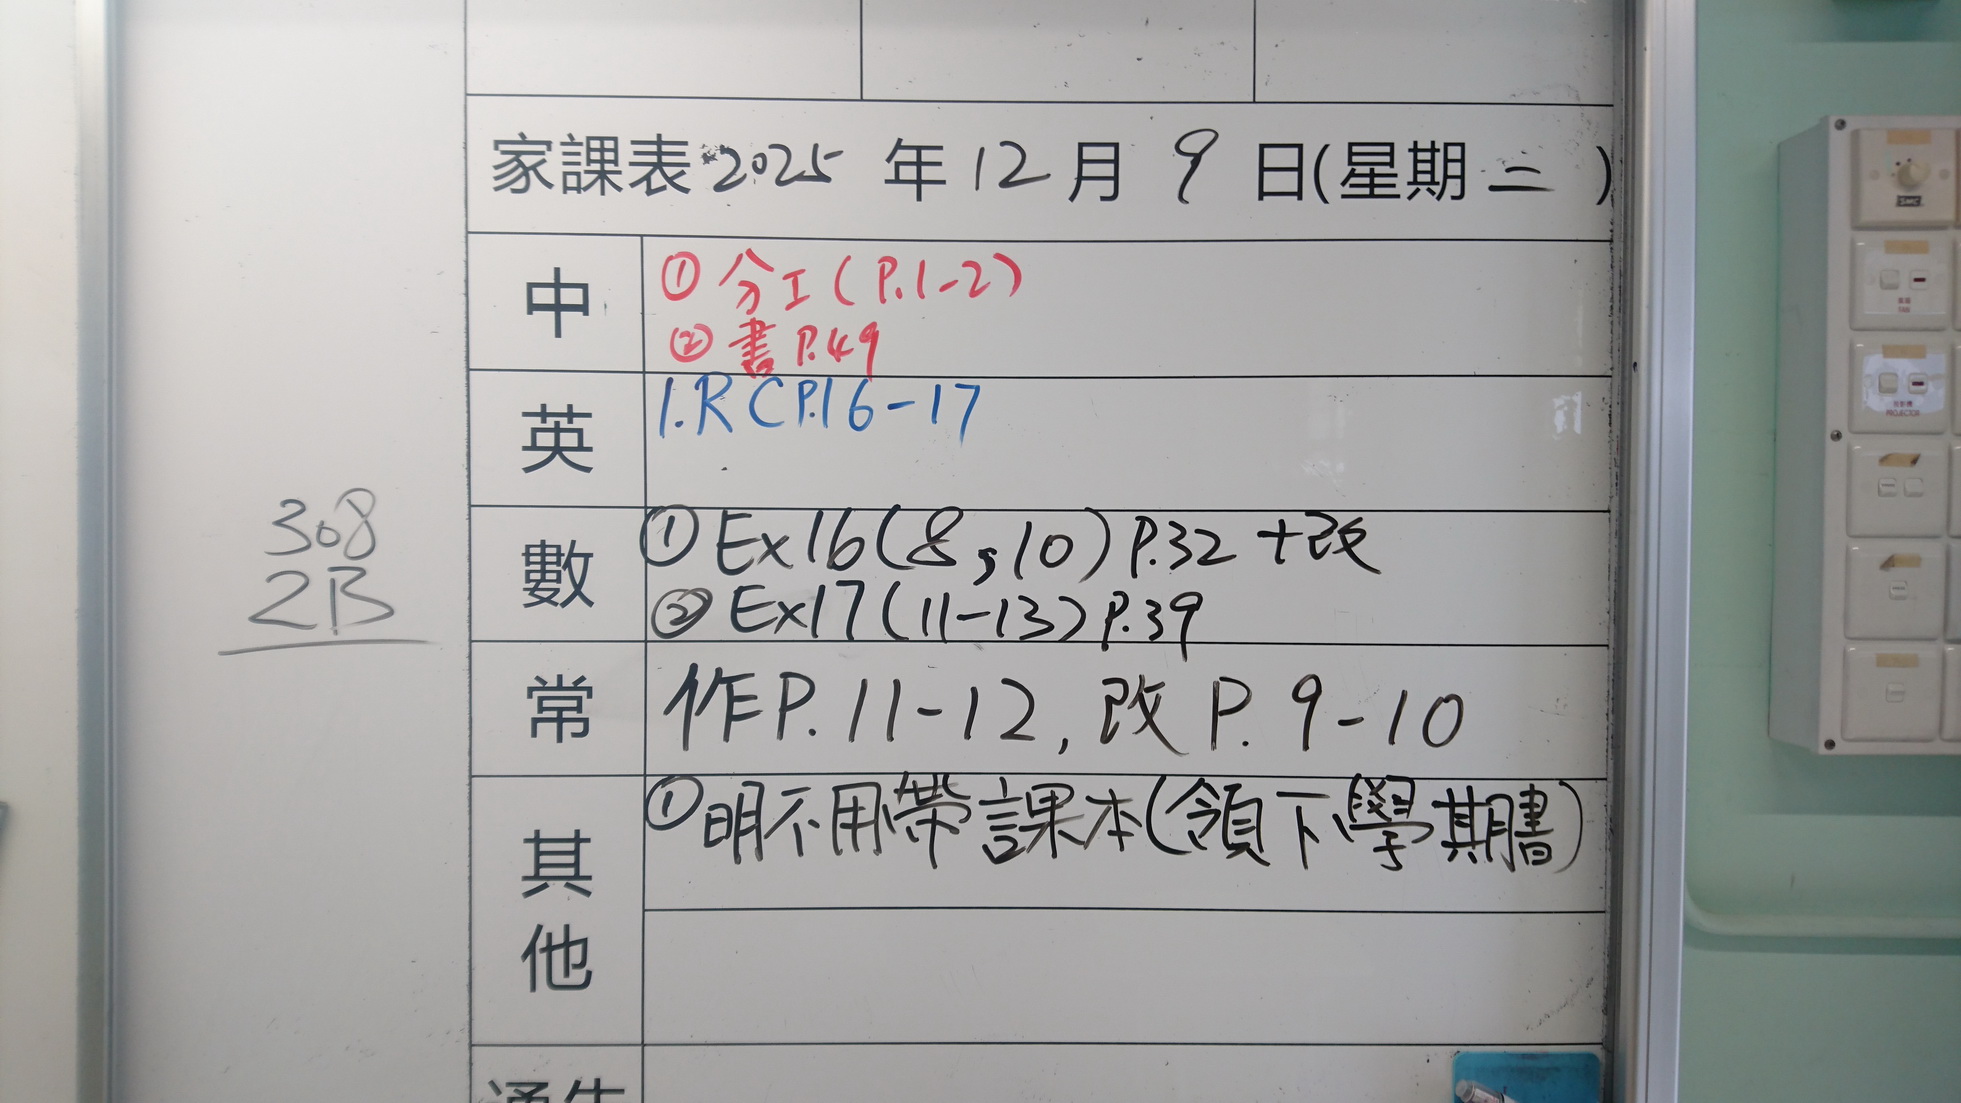 家課表 2025 年 12 月 9 日(星期 二 )
中
① 分工(P.1-2)
② 書 P.49
英
1.RC P.16-17
數
① Ex16(8,10) P.32 +改
② Ex17(11-13) P.39
常
作P.11-12, 改P. 9-10
其他
①明不用帶課本(領下學期書)
308
2B
SMC
FAN
PROJECTOR